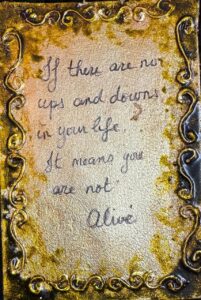 If there are no
ups and downs
in your life.
It means you
are not
Alive